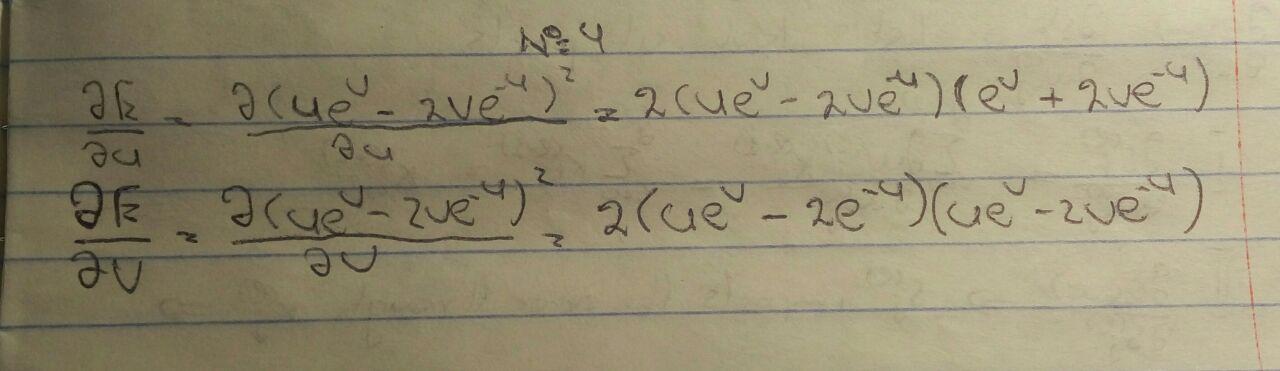 № 4
∂k/∂u = ∂(ue^v - 2ve^-u)²/∂u = 2(ue^v - 2ve^-u)(e^v + 2ve^-u)
∂k/∂v = ∂(ue^v - 2ve^-u)²/∂v = 2(ue^v - 2e^-u)(ue^v - 2ve^-u)